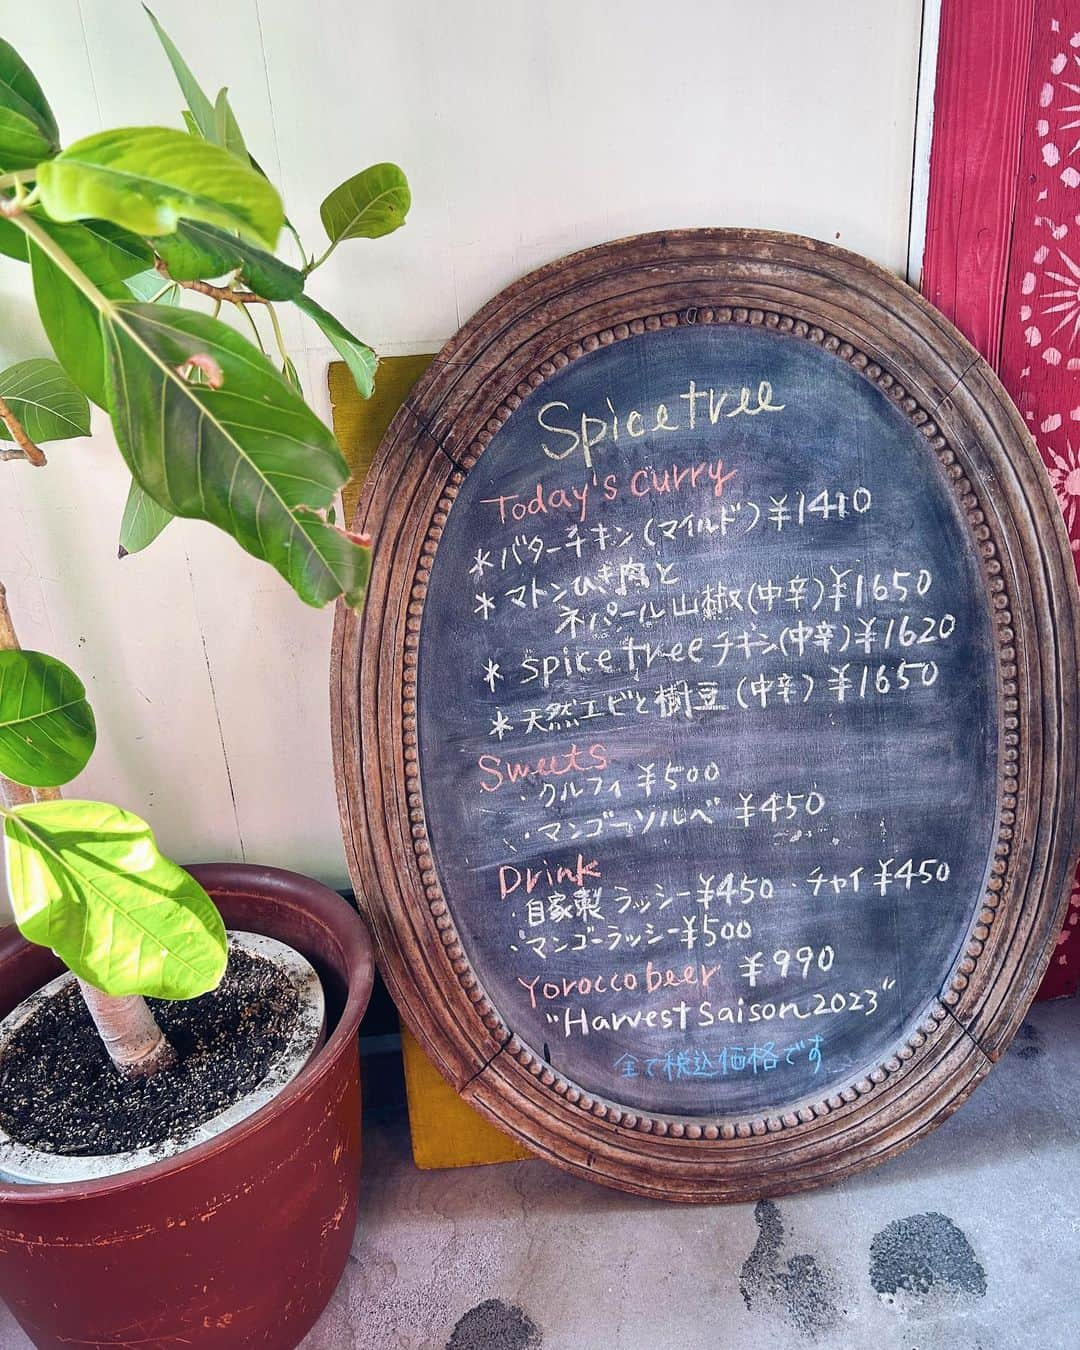 Spice tree
Today's curry
*バターチキン(マイルド)¥1410
*マトンひき肉と
ネパール山椒(中辛)¥1650
*spice treeチキン(中辛)¥1620
*天然エビと樹豆(中辛)¥1650
Sweets
・クルフィ ¥500
・マンゴーソルベ ¥450
Drink
・自家製ラッシー¥450 ・チャイ¥450
・マンゴーラッシー¥500
Yorocco beer ¥990
"Harvest Saison 2023"
全て税込価格です